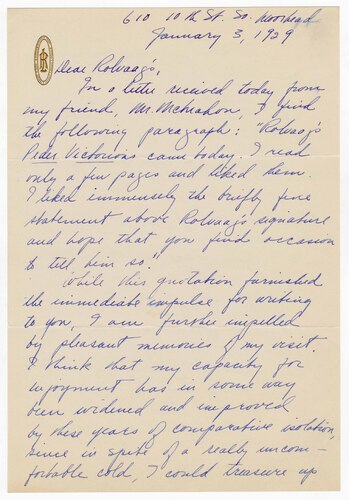 610 10th St. So. Moorhead
January 3, 1929
Dear Rolvaag's,
In a letter received today from
my friend, Mr. McMahon, I find
the following paragraph: "Rolvaag's
Peder Victorious came today. I read
only a few pages and liked them.
I liked immensely the briefly fine
statement above Rolvaag's signature
and hope that you find occasion
to tell him so."
While this quotation furnished
the immediate impulse for writing
to you, I am further impelled
by pleasant memories of my visit.
I think that my capacity for
enjoyment has in some way
been widened and improved
by these years of comparative isolation,
since in spite of a really uncom-
fortable cold, I could treasure up